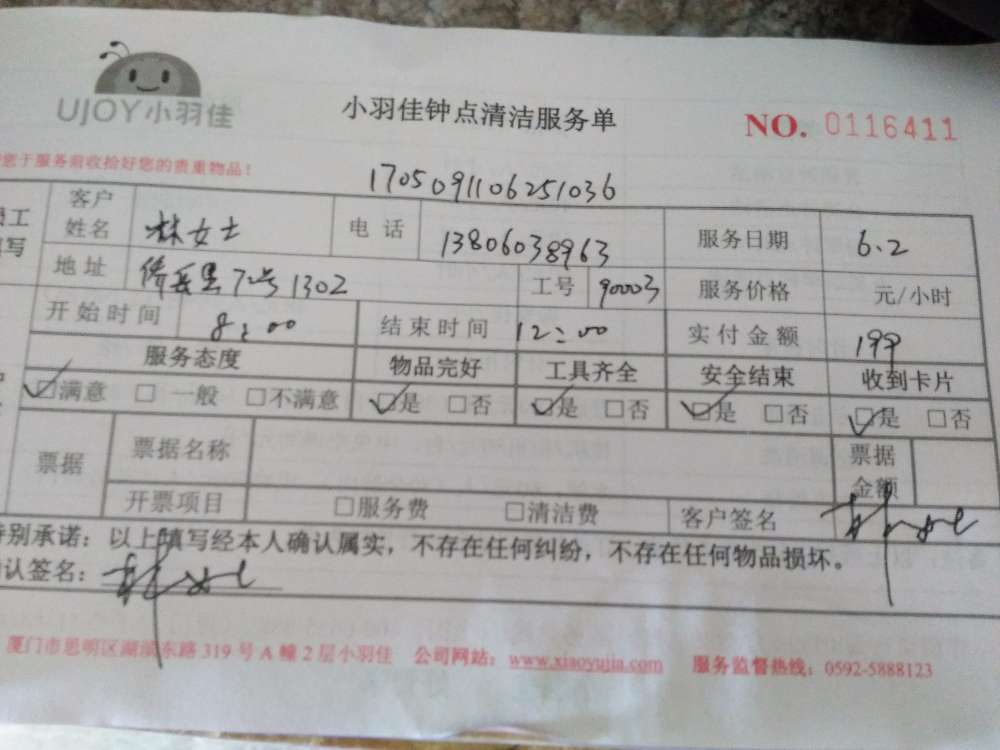 UJOY小羽佳
小羽佳钟点清洁服务单
NO. 0116411
您于服务前收拾好您的贵重物品!
1705091106251036
客户姓名 林女士 电话 13806038963 服务日期 6.2
地址 侨岳里72号1302 工号 90003 服务价格 元/小时
开始时间 8:00 结束时间 12:00 实付金额 199
服务态度 物品完好 工具齐全 安全结束 收到卡片
☑满意 □一般 □不满意 ☑是 □否 ☑是 □否 ☑是 □否 ☑是 □否
票据 票据名称 票据金额
开票项目 □服务费 □清洁费 客户签名
特别承诺:以上填写经本人确认属实,不存在任何纠纷,不存在任何物品损坏。
确认签名:
厦门市思明区湖滨东路319号A幢2层小羽佳 公司网站:www.xiaoyujia.com 服务监督热线:0592-5888123